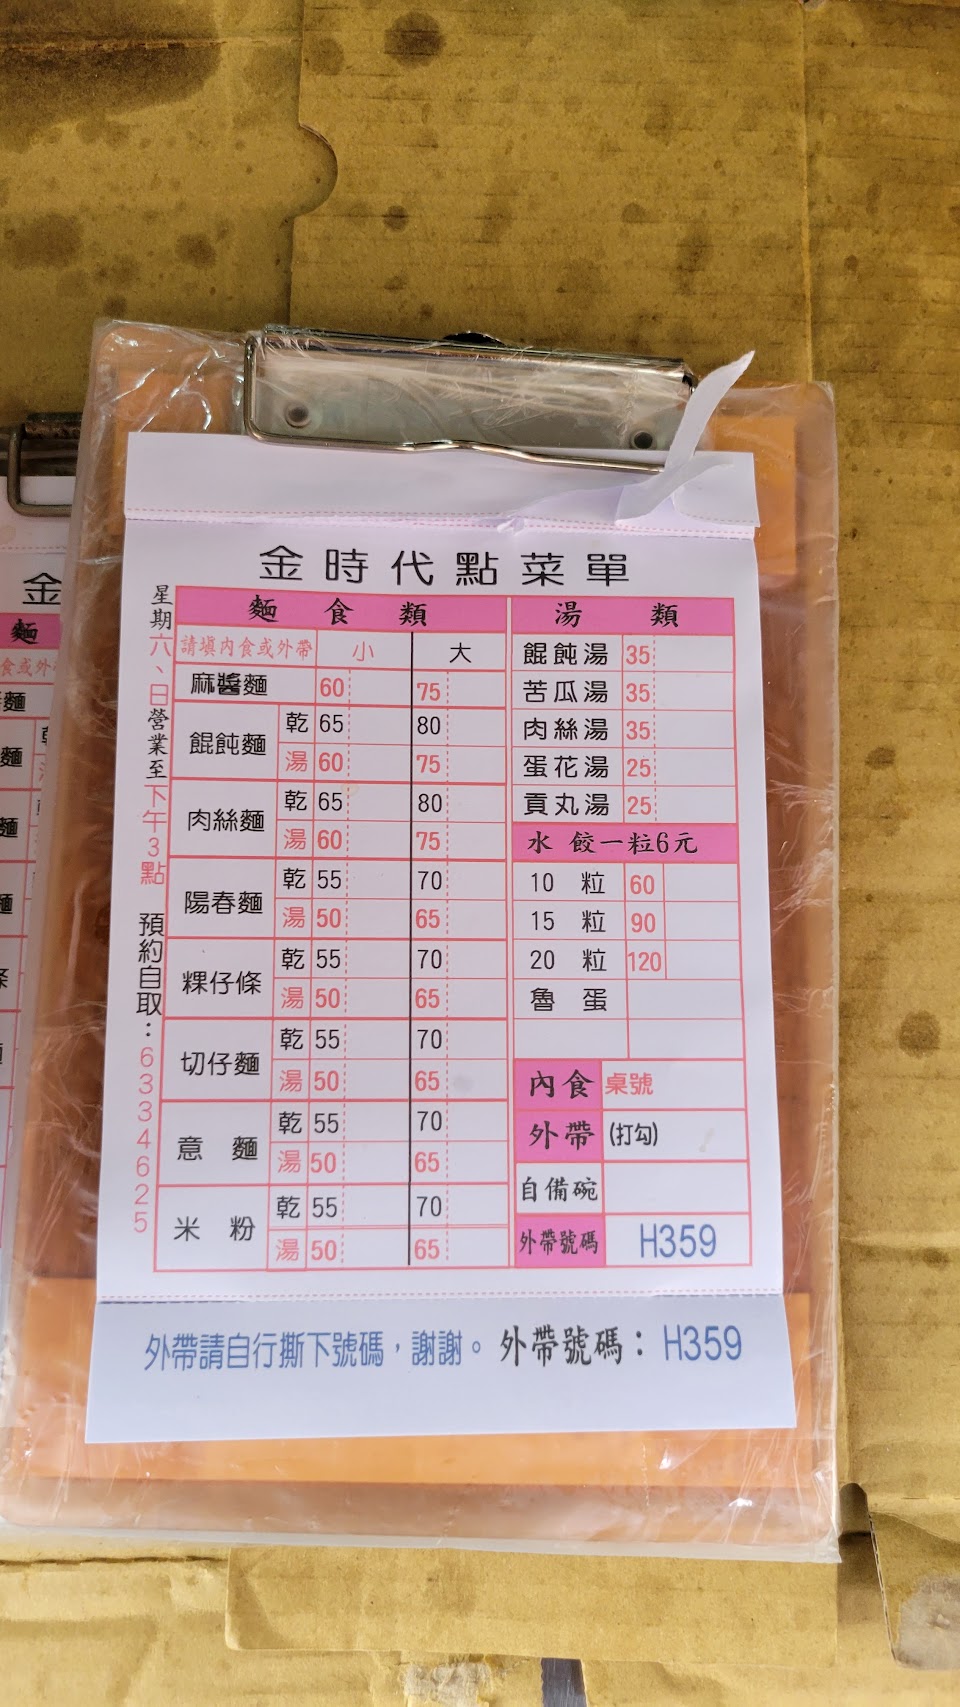 金時代點菜單
星期六、日營業至下午3點 預約自取：6334625
麵食類
請填內食或外帶 小 大
麻醬麵 60 75
餛飩麵 乾 65 80
湯 60 75
肉絲麵 乾 65 80
湯 60 75
陽春麵 乾 55 70
湯 50 65
粿仔條 乾 55 70
湯 50 65
切仔麵 乾 55 70
湯 50 65
意麵 乾 55 70
湯 50 65
米粉 乾 55 70
湯 50 65
湯類
餛飩湯 35
苦瓜湯 35
肉絲湯 35
蛋花湯 25
貢丸湯 25
水餃一粒6元
10 粒 60
15 粒 90
20 粒 120
魯蛋
內食 桌號
外帶 (打勾)
自備碗
外帶號碼 H359
外帶請自行撕下號碼，謝謝。 外帶號碼： H359
金
麵
食或外帶
麵
麵
麵
麵
條